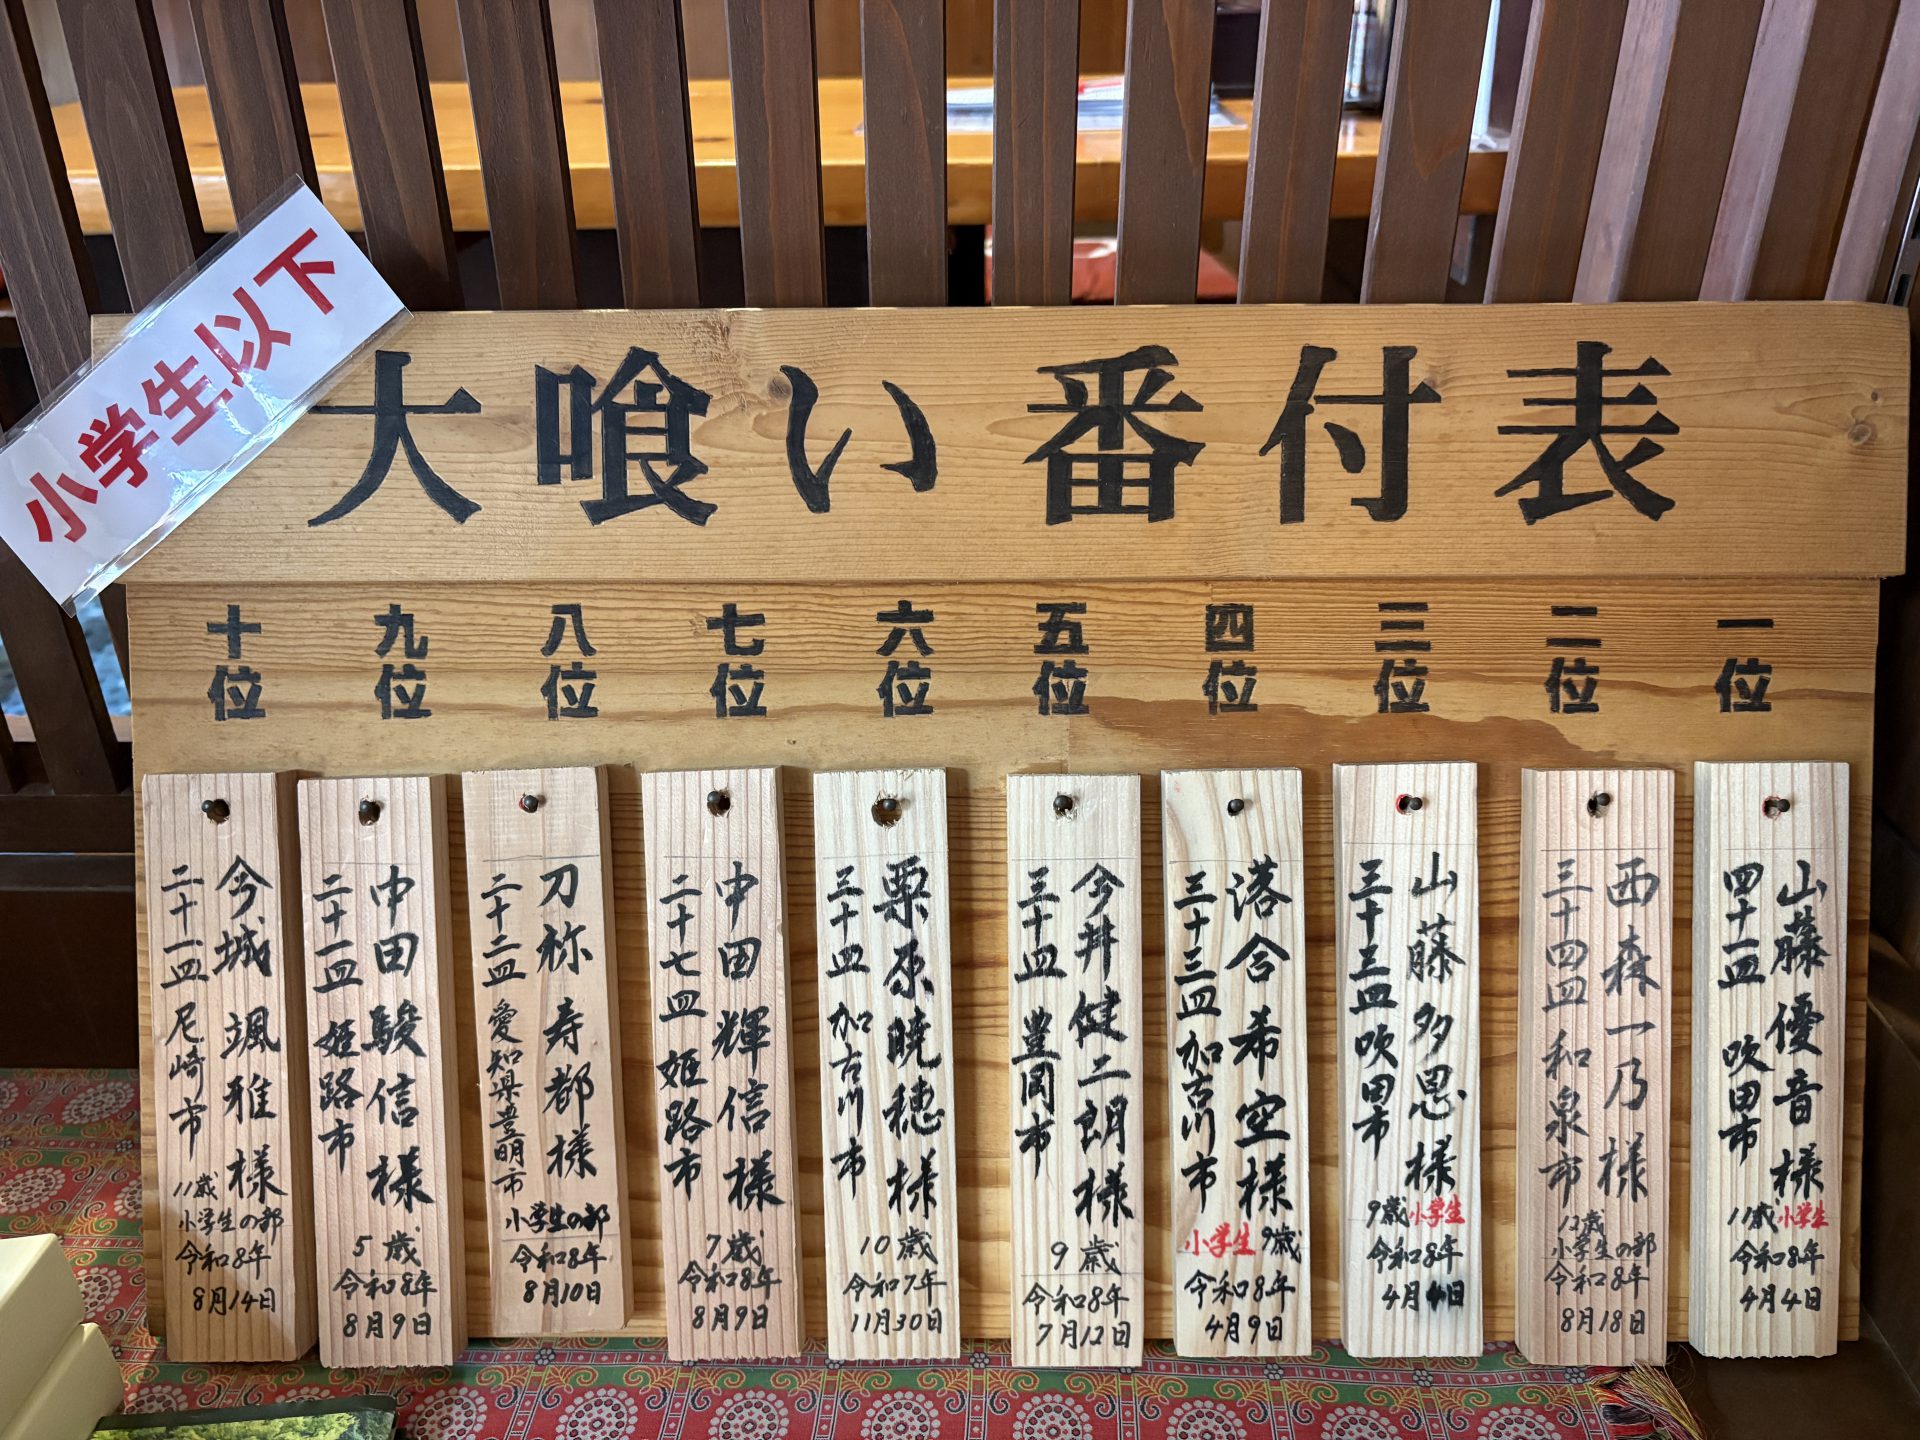 小学生以下
大喰い番付表
一位
山藤優音様
四十一皿 吹田市
11歳 小学生
令和8年
4月4日
二位
西森一乃様
三十四皿 和泉市
12歳
小学生の部
令和8年
8月18日
三位
山藤多恩様
三十三皿 吹田市
9歳 小学生
令和8年
4月4日
四位
落合希空様
三十三皿 加古川市
小学生 9歳
令和8年
4月9日
五位
今井健二朗様
三十皿 豊岡市
9歳
令和8年
7月12日
六位
栗原暁穂様
三十皿 加古川市
10歳
令和7年
11月30日
七位
中田輝信様
二十七皿 姫路市
7歳
令和8年
8月9日
八位
刀祢寿都様
二十二皿 愛知県豊明市
小学生の部
令和8年
8月10日
九位
中田駿信様
二十一皿 姫路市
5歳
令和8年
8月9日
十位
今城颯雅様
二十一皿 尼崎市
11歳
小学生の部
令和8年
8月14日